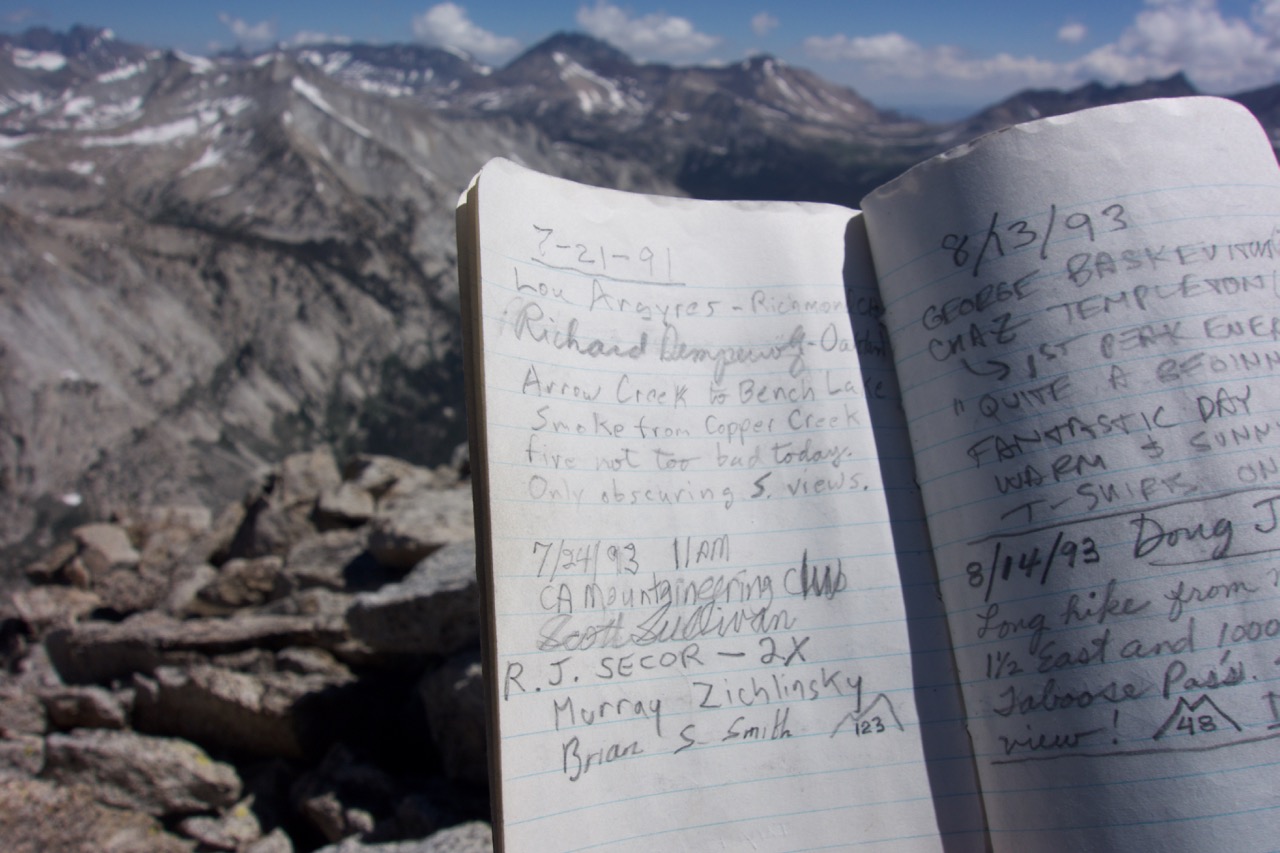 7-21-91
Lou Argyres - Richmond
Richard - Oakland
Arrow Creek to Bench Lake
Smoke from Copper Creek
fire not too bad today.
Only obscuring S. views.
7/24/93 11 AM
CA Mountaineering Club
Scott Sullivan
R. J. SECOR - 2X
Murray Zichlinsky
Brian S. Smith 123
8/13/93
GEORGE
CHAZ TEMPLETON/
↳ 1ST PEAK
"QUITE A
FANTASTIC DAY
WARM & SUNNY
T-SHIRTS ON
8/14/93 Doug J
Long hike from
1½ East and 1000
Taboose Pass.
view! 48 I